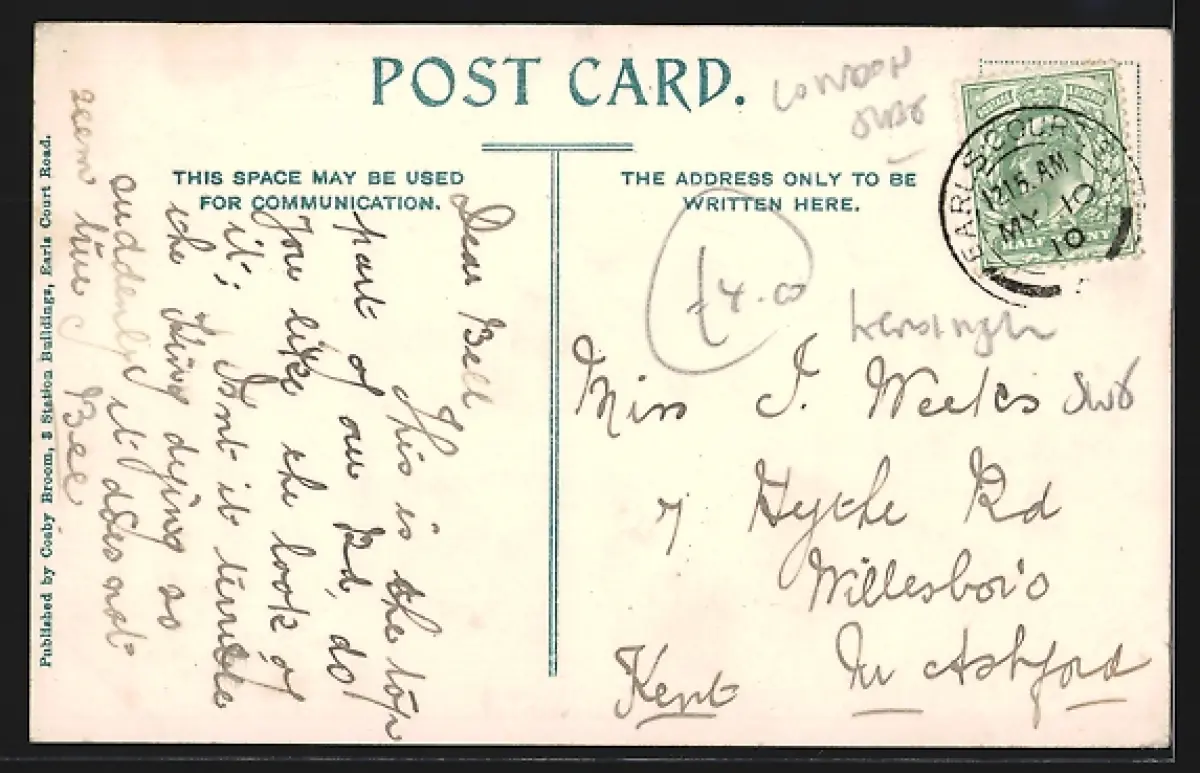 POST CARD.
LONDON
SW8
THIS SPACE MAY BE USED
FOR COMMUNICATION.
THE ADDRESS ONLY TO BE
WRITTEN HERE.
EARLS COURT
1215. AM
MY 10
10
HALF PENNY
£4.00
Dear Bell
This is the top
part of our Rd, do
you like the look of
it; Isnt it terrible
the King dying so
suddenly it does not
seem true
Bee
Miss I. Weeks
SW8
7 Hythe Rd
Willesboro
Nr Ashford
Kent
Published by Cosby Broom, 3 Station Buildings, Earls Court Road.